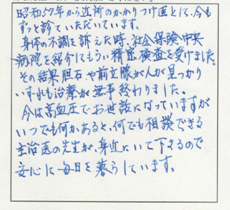 昭和59年から近所のかかりつけ医として、今も
ずっと診ていただいています。
身体の不調を訴えた時、社会保険中央
病院を紹介してもらい精密検査を受けました。
その結果胆石や前立腺がんが見つかり
いずれも治療が無事終わりました。
今は高血圧でお世話になっていますが
いつでも何かあると、何でも相談できる
主治医の先生が、身近にいて下さるので
安心に毎日を暮らしています。